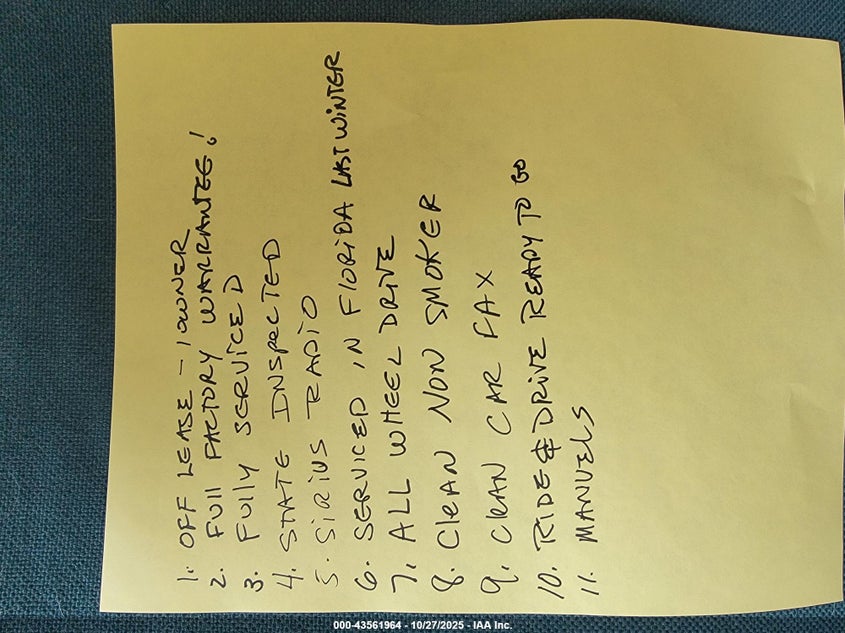 1. OFF LEASE - 1 OWNER
2. FUll FACTORY WARRANTEE!
3. FUlly SERVICED
4. STATE INSpECTED
5. SiRiUS RADiO
6. SERVICED IN FlORiDA LAST WiNTER
7. ALL WHEEL DRIVE
8. ClEAN NON SMOKER
9. ClEAN CAR FAX
10. RIDE & DRiVE READY TO GO
11. MANUElS
000-43561964 - 10/27/2025 - IAA Inc.